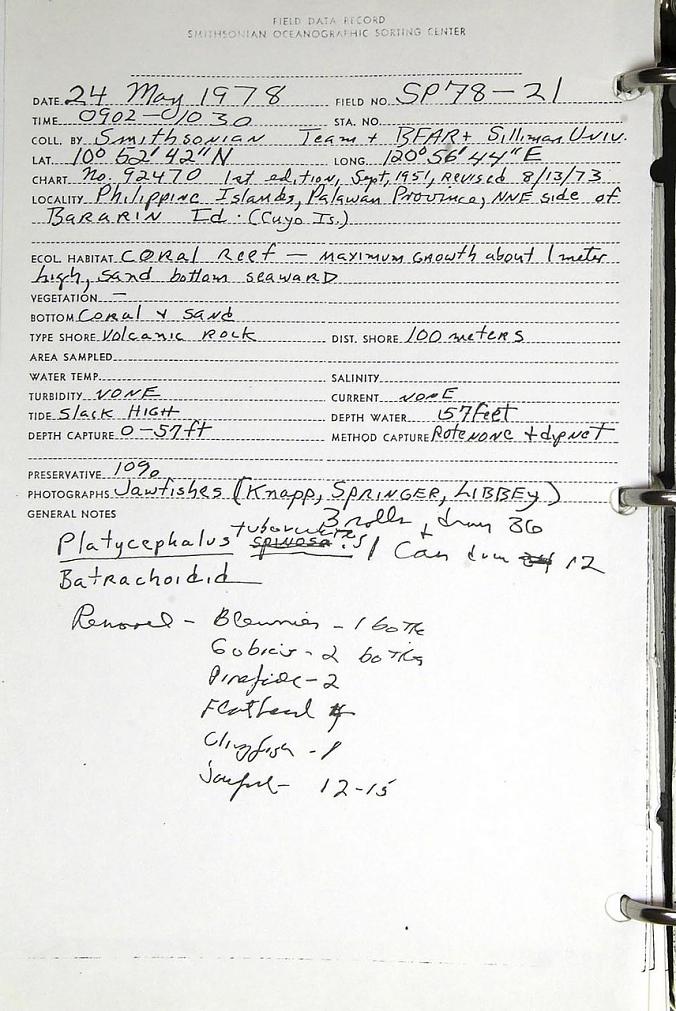 FIELD DATA RECORD
SMITHSONIAN OCEANOGRAPHIC SORTING CENTER
DATE 24 May 1978 FIELD NO. SP78-21
TIME 0902-01030 STA. NO.
COLL. BY Smithsonian Team + BFAR + Silliman Univ.
LAT. 10° 52' 42" N LONG. 120° 56' 44" E
CHART No. 92470 1st edition, Sept, 1951, Revised 8/13/73
LOCALITY Philippine Islands, Palawan Province, NNE side of
BARARIN Id. (Cuyo Is.)
ECOL. HABITAT CORAL Reef — MAXIMUM GROWTH about 1 meter
high, sand bottom seaward
VEGETATION —
BOTTOM Coral + Sand
TYPE SHORE Volcanic Rock DIST. SHORE 100 meters
AREA SAMPLED
WATER TEMP. SALINITY
TURBIDITY NONE CURRENT NONE
TIDE Slack HIGH DEPTH WATER 57 feet
DEPTH CAPTURE 0-57 ft METHOD CAPTURE Rotenone + dipnet
PRESERVATIVE 10%
PHOTOGRAPHS Jawfishes (Knapp, SPRINGER, LIBBEY)
GENERAL NOTES 3 rolls + drum 36
Platycephalus spinosa 1 Can drum 12
Batrachoidid
Removed - Blennies - 1 bottle
Gobies - 2 bottles
Pipefish - 2
Flathead
Clingfish - 1
Jawfish - 12-15